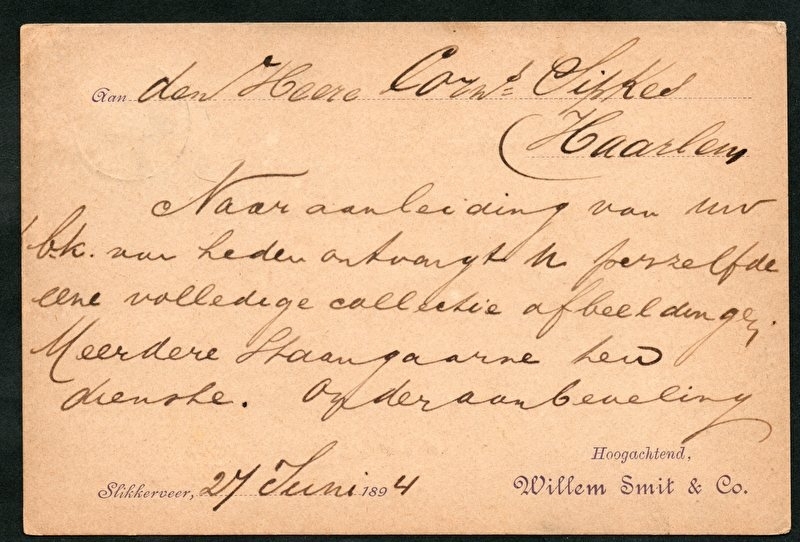 Aan den Heere Corns Sipkes
Haarlem
Naar aanleiding van uw
bk. van heden ontvangt U perzelfde
eene volledige collectie afbeeldingen.
Meerdere staan gaarne ten
dienste. Onder aanbeveling
Hoogachtend,
Slikkerveer, 27 Juni 1894 Willem Smit & Co.